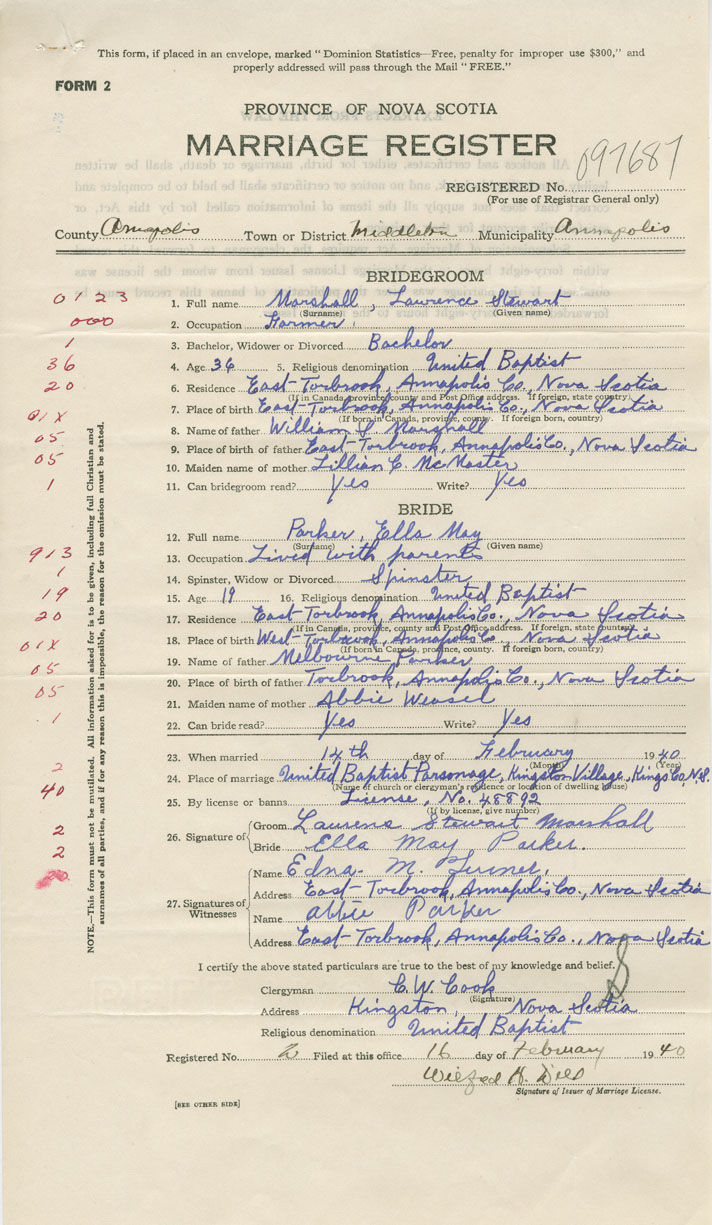 This form, if placed in an envelope, marked "Dominion Statistics—Free, penalty for improper use $300," and
properly addressed will pass through the Mail "FREE."
FORM 2
PROVINCE OF NOVA SCOTIA
MARRIAGE REGISTER
097687
REGISTERED No.
(For use of Registrar General only)
County Annapolis Town or District Middleton Municipality Annapolis
BRIDEGROOM
0123 1. Full name Marshall, Lawrence Stewart
(Surname) (Given name)
000 2. Occupation Farmer.
1 3. Bachelor, Widower or Divorced Bachelor
36 4. Age 36 5. Religious denomination United Baptist
20 6. Residence East-Torbrook, Annapolis Co., Nova Scotia
(If in Canada, province, county and Post Office address. If foreign, state country)
01X 7. Place of birth East-Torbrook, Annapolis Co., Nova Scotia
(If born in Canada, province, county. If foreign born, country)
05 8. Name of father William J. Marshall
9. Place of birth of father East-Torbrook, Annapolis Co., Nova Scotia
05 10. Maiden name of mother Lillian C. McMaster
1 11. Can bridegroom read? Yes Write? Yes
BRIDE
12. Full name Parker, Ella May
(Surname) (Given name)
913 13. Occupation Lived with parents
1 14. Spinster, Widow or Divorced Spinster
19 15. Age 19 16. Religious denomination United Baptist
20 17. Residence East-Torbrook, Annapolis Co., Nova Scotia
(If in Canada, province, county and Post Office address. If foreign, state country)
01X 18. Place of birth West-Torbrook, Annapolis Co. Nova Scotia
(If born in Canada, province, county. If foreign born, country)
05 19. Name of father Melbourne Parker
20. Place of birth of father Torbrook, Annapolis Co., Nova Scotia
05 21. Maiden name of mother Abbie
1 22. Can bride read? Yes Write? Yes
23. When married 14th day of February 1940
(Month) (Year)
2 24. Place of marriage United Baptist Parsonage, Kingston Village, Kings Co, N.S.
(Name of church or clergyman's residence or location of dwelling house)
40 25. By license or banns License, No. 48892
(If by license, give number)
2 26. Signature of Groom Laurens Stewart Marshall
2 Bride Ella May Parker.
27. Signatures of Witnesses Name Edna. M.
Address East-Torbrook, Annapolis Co., Nova Scotia
Name Abbie Parker
Address East-Torbrook, Annapolis Co., Nova Scotia
I certify the above stated particulars are true to the best of my knowledge and belief.
Clergyman C. W. Cook
(Signature)
Address Kingston, Nova Scotia
Religious denomination United Baptist
Registered No. 2 Filed at this office 16 day of February 1940
Wilfred H.
Signature of Issuer of Marriage License.
[SEE OTHER SIDE]
NOTE.—This form must not be mutilated. All information asked for is to be given, including full Christian and
surnames of all parties, and if for any reason this is impossible, the reason for the omission must be stated.